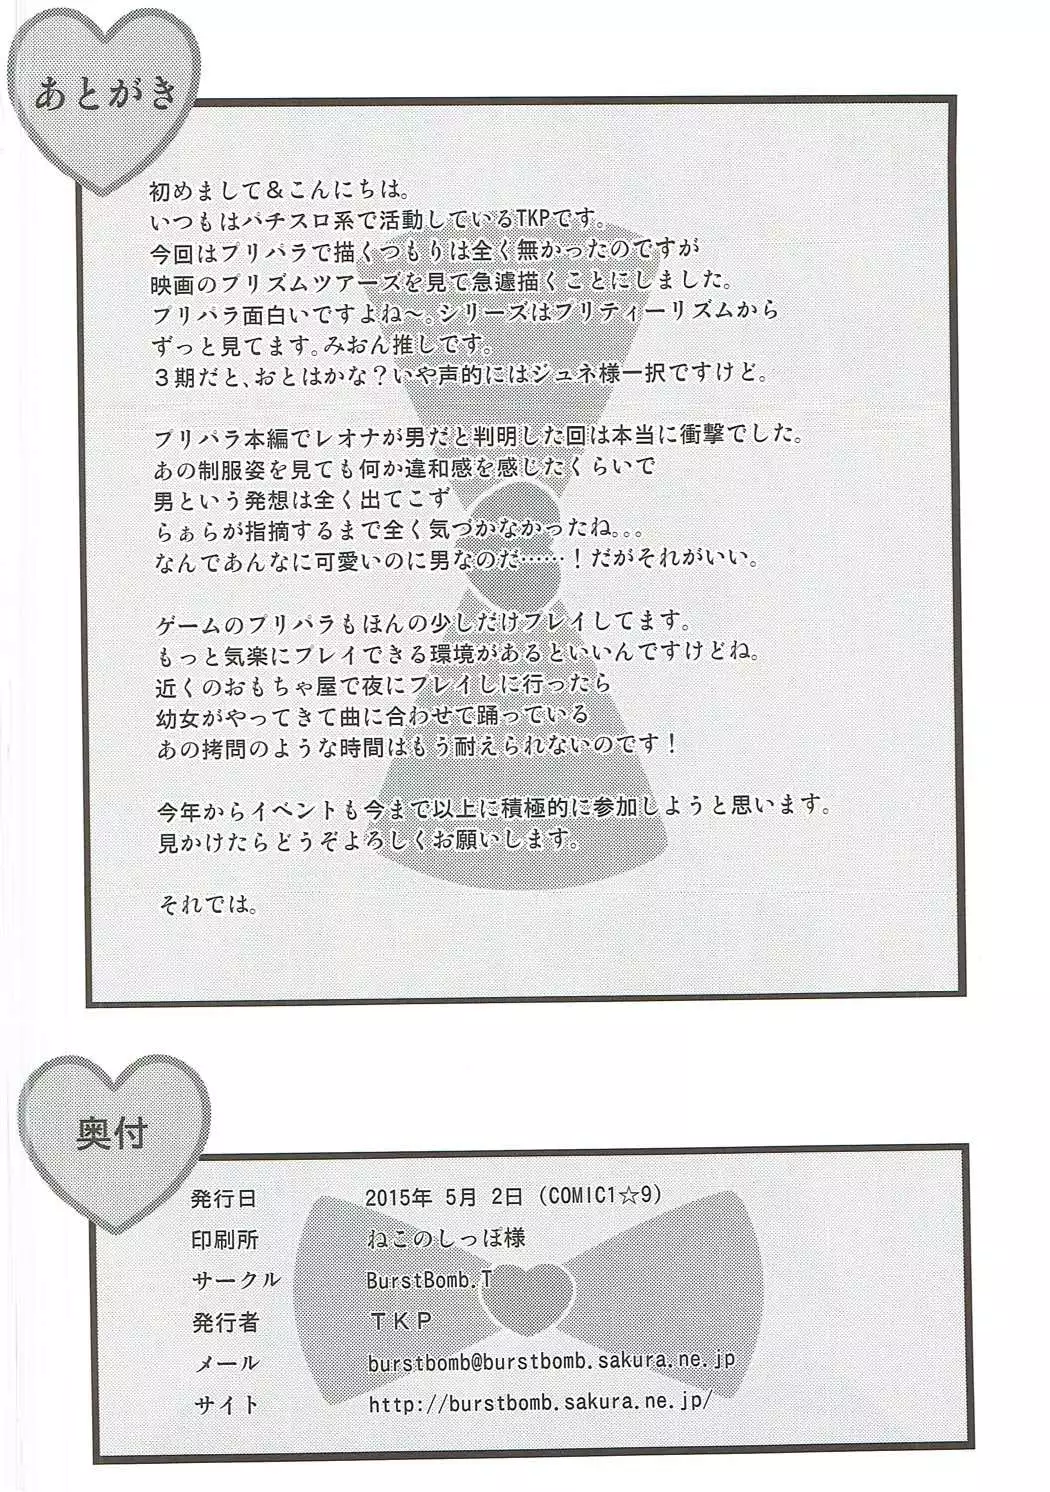 あとがき
初めまして&こんにちは。
いつもはパチスロ系で活動しているTKPです。
今回はプリパラで描くつもりは全く無かったのですが
映画のプリズムツアーズを見て急遽描くことにしました。
プリパラ面白いですよね～。シリーズはプリティーリズムから
ずっと見てます。みおん推しです。
3期だと、おとはかな？いや声的にはジュネ様一択ですけど。
プリパラ本編でレオナが男だと判明した回は本当に衝撃でした。
あの制服姿を見ても何か違和感を感じたくらいで
男という発想は全く出てこず
らぁらが指摘するまで全く気づかなかったね。。。
なんであんなに可愛いのに男なのだ……！だがそれがいい。
ゲームのプリパラもほんの少しだけプレイしてます。
もっと気楽にプレイできる環境があるといいんですけどね。
近くのおもちゃ屋で夜にプレイしに行ったら
幼女がやってきて曲に合わせて踊っている
あの拷問のような時間はもう耐えられないのです！
今年からイベントも今まで以上に積極的に参加しようと思います。
見かけたらどうぞよろしくお願いします。
それでは。
奥付
発行日 2015年 5月 2日 (COMIC1☆9)
印刷所 ねこのしっぽ様
サークル BurstBomb.T
発行者 TKP
メール burstbomb@burstbomb.sakura.ne.jp
サイト http://burstbomb.sakura.ne.jp/